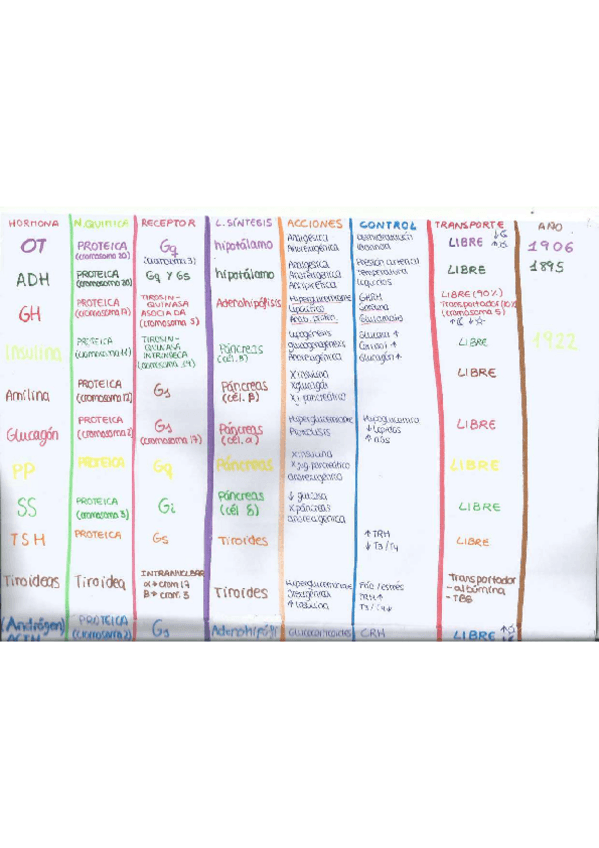 HORMONA N.QUIMICA RECEPTOR L.SÍNTESIS ACCIONES CONTROL TRANSPORTE AÑO
OT PROTEICA (cromosoma 20) Gq (cromosoma 3) hipotálamo Analgésica Anorexigénica LIBRE 1906
ADH PROTEICA (cromosoma 20) Gq Y Gs hipotálamo Analgésica Antipirética Presión arterial Temperatura LIBRE 1895
GH PROTEICA (cromosoma 17) TIROSIN-QUINASA ASOCIADA (cromosoma 5) Adenohipófisis Hiperglucemiante Lipolítica GHRH LIBRE (90%) Transportador (cromosoma 5)
Insulina PROTEICA (cromosoma 11) TIROSIN-QUINASA INTRÍNSECA (cromosoma 19) Páncreas (cél. β) Lipogénesis Anorexigénica Glucemia ↑ Glucagón ↑ LIBRE 1922
Amilina PROTEICA (cromosoma 12) Gs Páncreas (cél. β) X insulina X glucagón X j pancreático LIBRE
Glucagón PROTEICA (cromosoma 2) Gs (cromosoma 17) Páncreas (cél. α) Hiperglucemiante Hipoglucemia ↓ lípidos LIBRE
PP PROTEICA Gq Páncreas X insulina X jug. pancreático anorexigénica LIBRE
SS PROTEICA (cromosoma 3) Gi Páncreas (cél δ) X páncreas anorexigénica LIBRE
TSH PROTEICA Gs Tiroides ↑ TRH ↓ T3/T4 LIBRE
Tiroideas Tiroidea INTRANUCLEAR α→ crom 17 β→ crom. 3 Tiroides Hiperglucemiante Frío/estrés T3/T4↓ Transportador - albúmina - TBG
(Andrógen) ACTH PROTEICA (cromosoma 2) Gs Adenohipófi Glucocorticoides CRH LIBRE